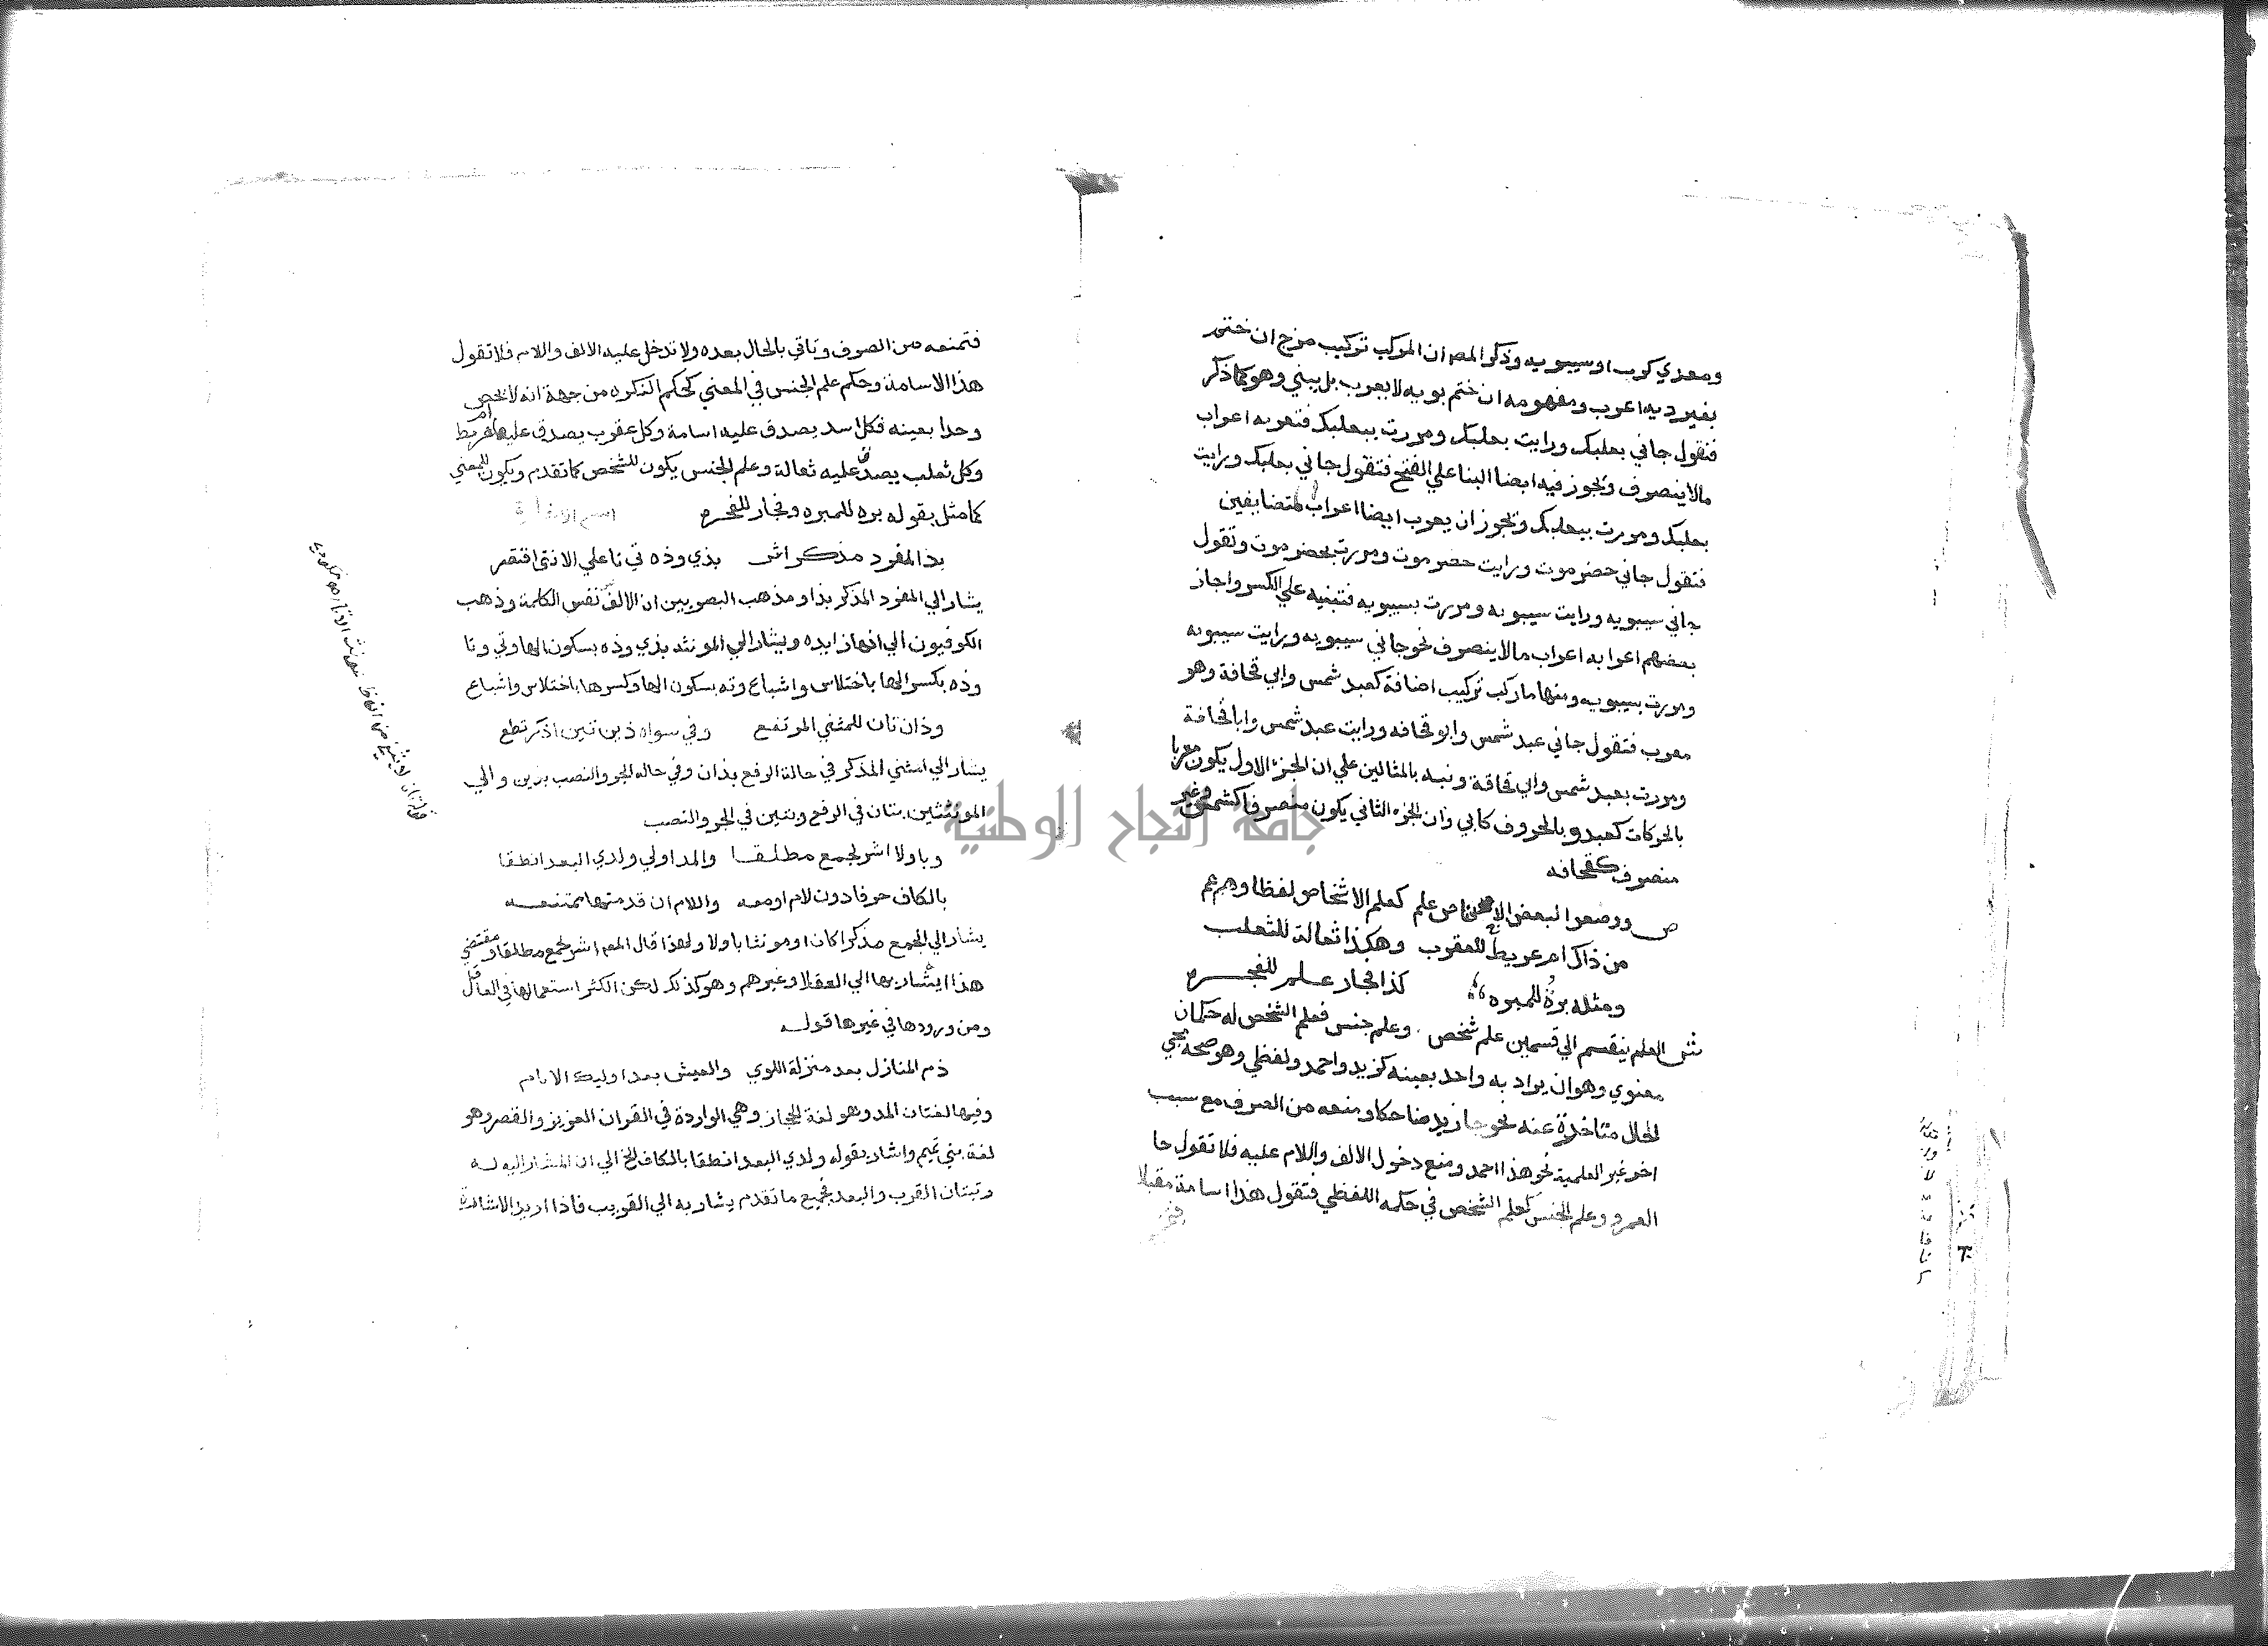 ومعدي كرب او سيبويه وذكر المص ان المركب تركيب مزج ان ختم
بغير ويه اعرب ومفهومه ان ختم بويه لا يعرب بل يبني وهو كما ذكر
فتقول جاني بعلبك ورايت بعلبك ومررت ببعلبك فتعربه اعراب
مالا ينصرف ويجوز فيه ايضا البنا علي الفتح فتقول جاني بعلبك ورايت
بعلبك ومررت ببعلبك ويجوز ان يعرب ايضا اعراب المتضايفين
فتقول جاني حضرموت ورايت حضرموت ومررت بحضرموت وتقول
جاني سيبويه ورايت سيبويه ومررت بسيبويه فتبنيه علي الكسر واجاز
بعضهم اعرابه اعراب مالا ينصرف نحو جاني سيبويه ورايت سيبويه
ومررت بسيبويه ومنها ما ركب تركيب اضافة كعبد شمس وابي قحافة وهو
معرب فتقول جاني عبد شمس وابو قحافه ورايت عبد شمس وابا قحافة
ومررت بعبد شمس وابي قحافة ونبه بالمثالين علي ان الجز الاول يكون معربا
بالحركات كعبد وبالحروف كابي وان الجزء الثاني يكون منصرفا كشمس وغير
منصرف كقحافه
ص ووضعوا لبعض الاجناس علم كعلم الاشخاص لفظا وهو عم
من ذاك ام عريط للعقرب وهكذا ثعالة للثعلب
ومثله برة للمبره كذا فجار علم للفجره
ش العلم ينقسم الي قسمين علم شخص وعلم جنس فعلم الشخص له حكمان
معنوي وهو ان يراد به واحد بعينه كزيد واحمد ولفظي وهو صحة مجي
الحال متاخرة عنه نحو جا زيد ضاحكا ومنعه من الصرف مع سبب
اخر غير العلمية نحو هذا احمد ومنع دخول الالف واللام عليه فلا تقول جا
العمرو وعلم الجنس كعلم الشخص في حكمه اللفظي فتقول هذا اسامة مقبلا
فتمنعه من الصرف وتاتي بالحال بعده ولا تدخل عليه الالف واللام فلا تقول
هذا الاسامة وحكم علم الجنس في المعني كحكم النكره من جهة انه لا يخص
وحدا بعينه فكل اسد يصدق عليه اسامة وكل عقرب يصدق عليها ام عريط
وكل ثعلب يصدق عليه ثعالة وعلم الجنس يكون للشخص كما تقدم ويكون للمعني
كما مثل بقوله بره للمبره وفجار للفجره اسم الاشارة
بذا لمفرد مذكر اشر بذي وذه تي تا علي الانثي اقتصر
يشار الي المفرد المذكر بذا ومذهب البصريين ان الالف من نفس الكلمة وذهب
الكوفيون الي انها زايده ويشار الي المونثه بذي وذه بسكون الها وتي وتا
وذه بكسر الها باختلاس واشباع وته بسكون الها وكسرها باختلاس واشباع
وذان تان للمثني المرتفع وفي سواه ذين تين اذكر تطع
يشار الي المثني المذكر في حالة الرفع بذان وفي حاله الجر والنصب بذين والي
المونثتين بتان في الرفع وتين في الجر والنصب
وباولا اشر لجمع مطلقا والمد اولي ولدي البعد انطقا
بالكاف حرفا دون لام او معه واللام ان قدمت ها ممتنعه
يشار الي الجمع مذكرا كان او مونثا باولا ولهذا قال المص اشر لجمع مطلقا ومقتضي
هذا ان يشار بها الي العقلا وغيرهم وهو كذلك لكن الكثر استعمالها في العاقل
ومن ورودها في غيرها قوله
ذم المنازل بعد منزلة اللوي والعيش بعد اوليك الايام
وفيها لغتان المد وهو لغة الحجاز وهي الواردة في القران العزيز والقصر وهو
لغة بني تميم واشار بقوله ولدي البعد انطقا بالكاف الخ الي ان المشار اليه له
رتبتان القرب والبعد فجميع ما تقدم يشار به الي القريب فاذا اريد الاشارة
جامعة النجاح الوطنية